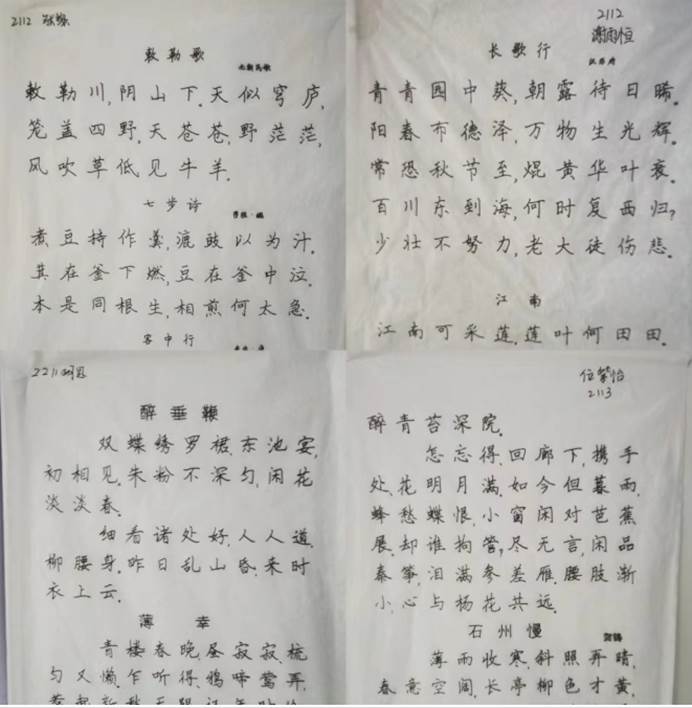 2112
敕勒歌
北朝民歌
敕勒川,阴山下.天似穹庐,
笼盖四野.天苍苍,野茫茫,
风吹草低见牛羊.
七步诗
煮豆持作羹,漉豉以为汁.
萁在釜下燃,豆在釜中泣.
本是同根生,相煎何太急.
客中行
2112
谢雨恒
长歌行
汉乐府
青青园中葵,朝露待日晞.
阳春布德泽,万物生光辉.
常恐秋节至,焜黄华叶衰.
百川东到海,何时复西归?
少壮不努力,老大徒伤悲.
江南
江南可采莲,莲叶何田田.
2211
醉垂鞭
双蝶绣罗裙.东池宴,
初相见.朱粉不深匀,闲花
淡淡春.
细看诸处好.人人道.
柳腰身.昨日乱山昏.来时
衣上云.
薄幸
青楼春晚.昼寂寂.梳
匀又懒.乍听得.鸦啼莺弄.
位紫怡
2113
醉青苔深院.
怎忘得.回廊下,携手
处.花明月满.如今但暮雨.
蜂愁蝶恨.小窗闲对芭蕉
展.却谁拘管,尽无言,闲品
秦筝,泪满参差雁.腰肢渐
小,心与杨花共远.
石州慢
贺铸
薄雨收寒.斜照弄晴.
春意空阔.长亭柳色才黄.